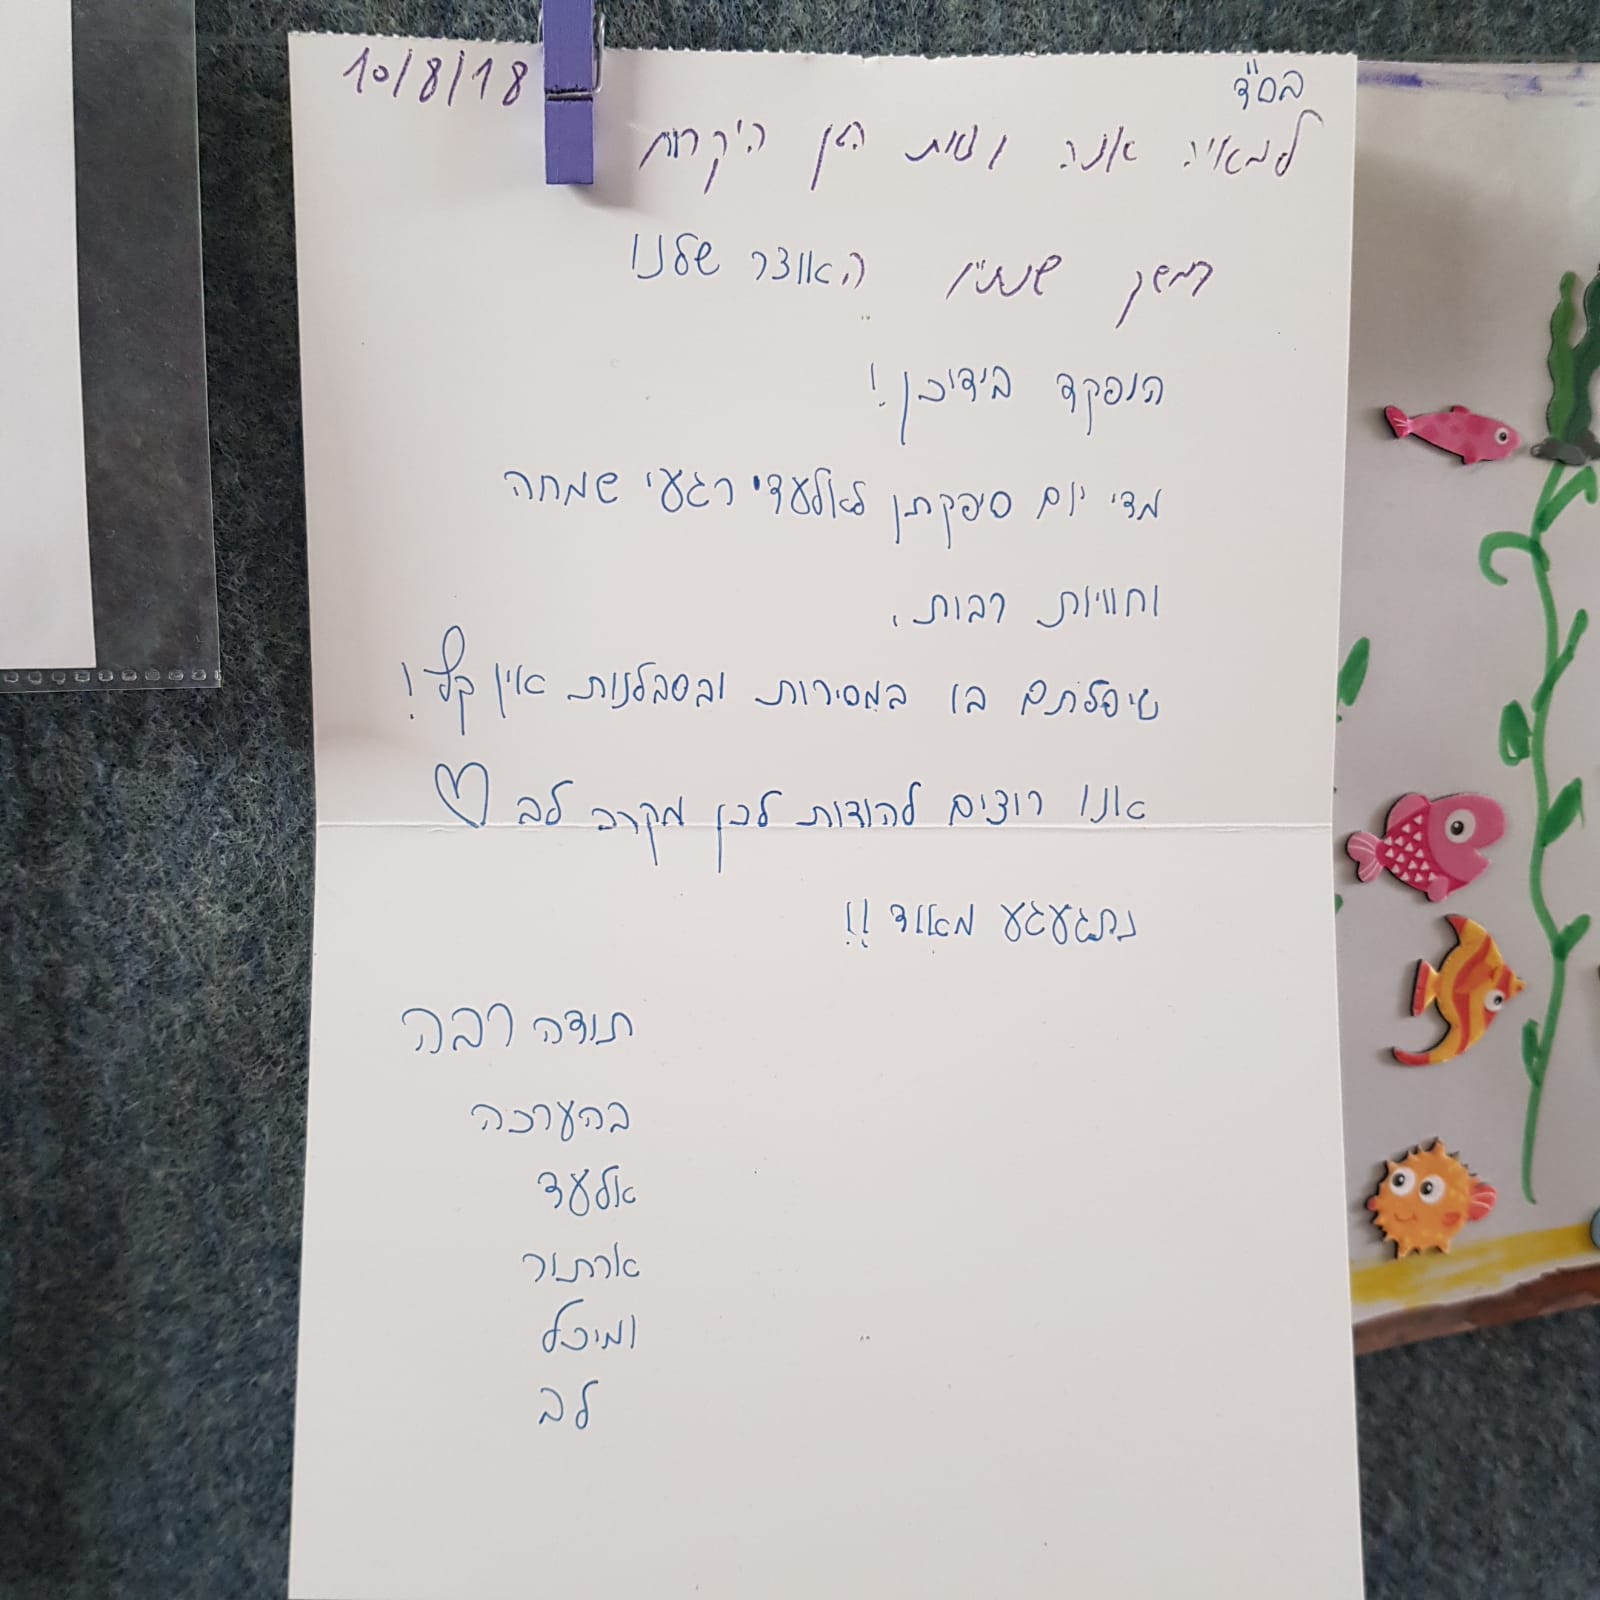 10/8/18
בס"ד
למאיה אנה וצוות הגן היקרות
במשך שנתיים האוצר שלנו
הופקד בידיכן!
מדי יום סיפקתן לאלעדי רגעי שמחה
וחוויות רבות.
טיפלתם בו במסירות ובסבלנות אין קץ!
אנו רוצים להודות לכן מקרב לב
נתגעגע מאוד!!
תודה רבה
בהערכה
אלעד
ארתור
ומיכל
לב